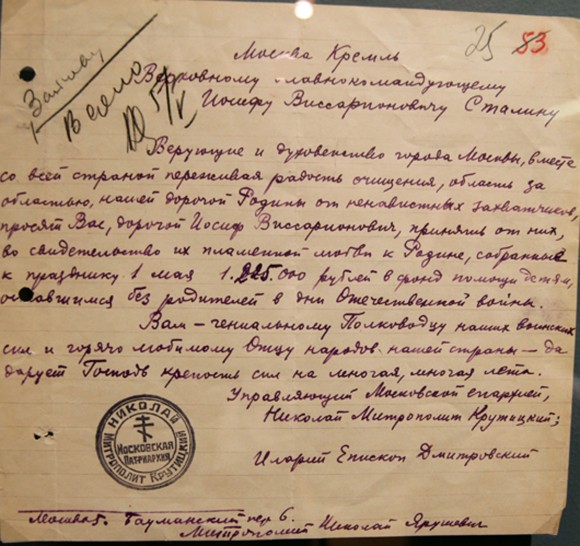 25 83
Москва Кремль
Верховному Главнокомандующему
Иосифу Виссарионовичу Сталину
Верующие и духовенство города Москвы, вместе
со всей страной переживая радость очищения, область за
областью, нашей дорогой Родины от ненавистных захватчиков,
просят Вас, дорогой Иосиф Виссарионович, принять от них,
во свидетельство их пламенной любви к Родине, собранные
к празднику 1 мая 1.225.000 рублей в фонд помощи детям,
оставшимся без родителей в дни Отечественной войны.
Вам – гениальному Полководцу наших воинских
сил и горячо любимому Отцу народов нашей страны – да
дарует Господь крепость сил на многая, многая лета.
Управляющий Московской епархией,
Николай Митрополит Крутицкий;
Иларий Епископ Дмитровский
НИКОЛАЙ
МИТРОПОЛИТ КРУТИЦКИЙ
МОСКОВСКАЯ
ПАТРИАРХИЯ
Москва 5. Бауманский пер 6.
Митрополит Николай Ярушевич